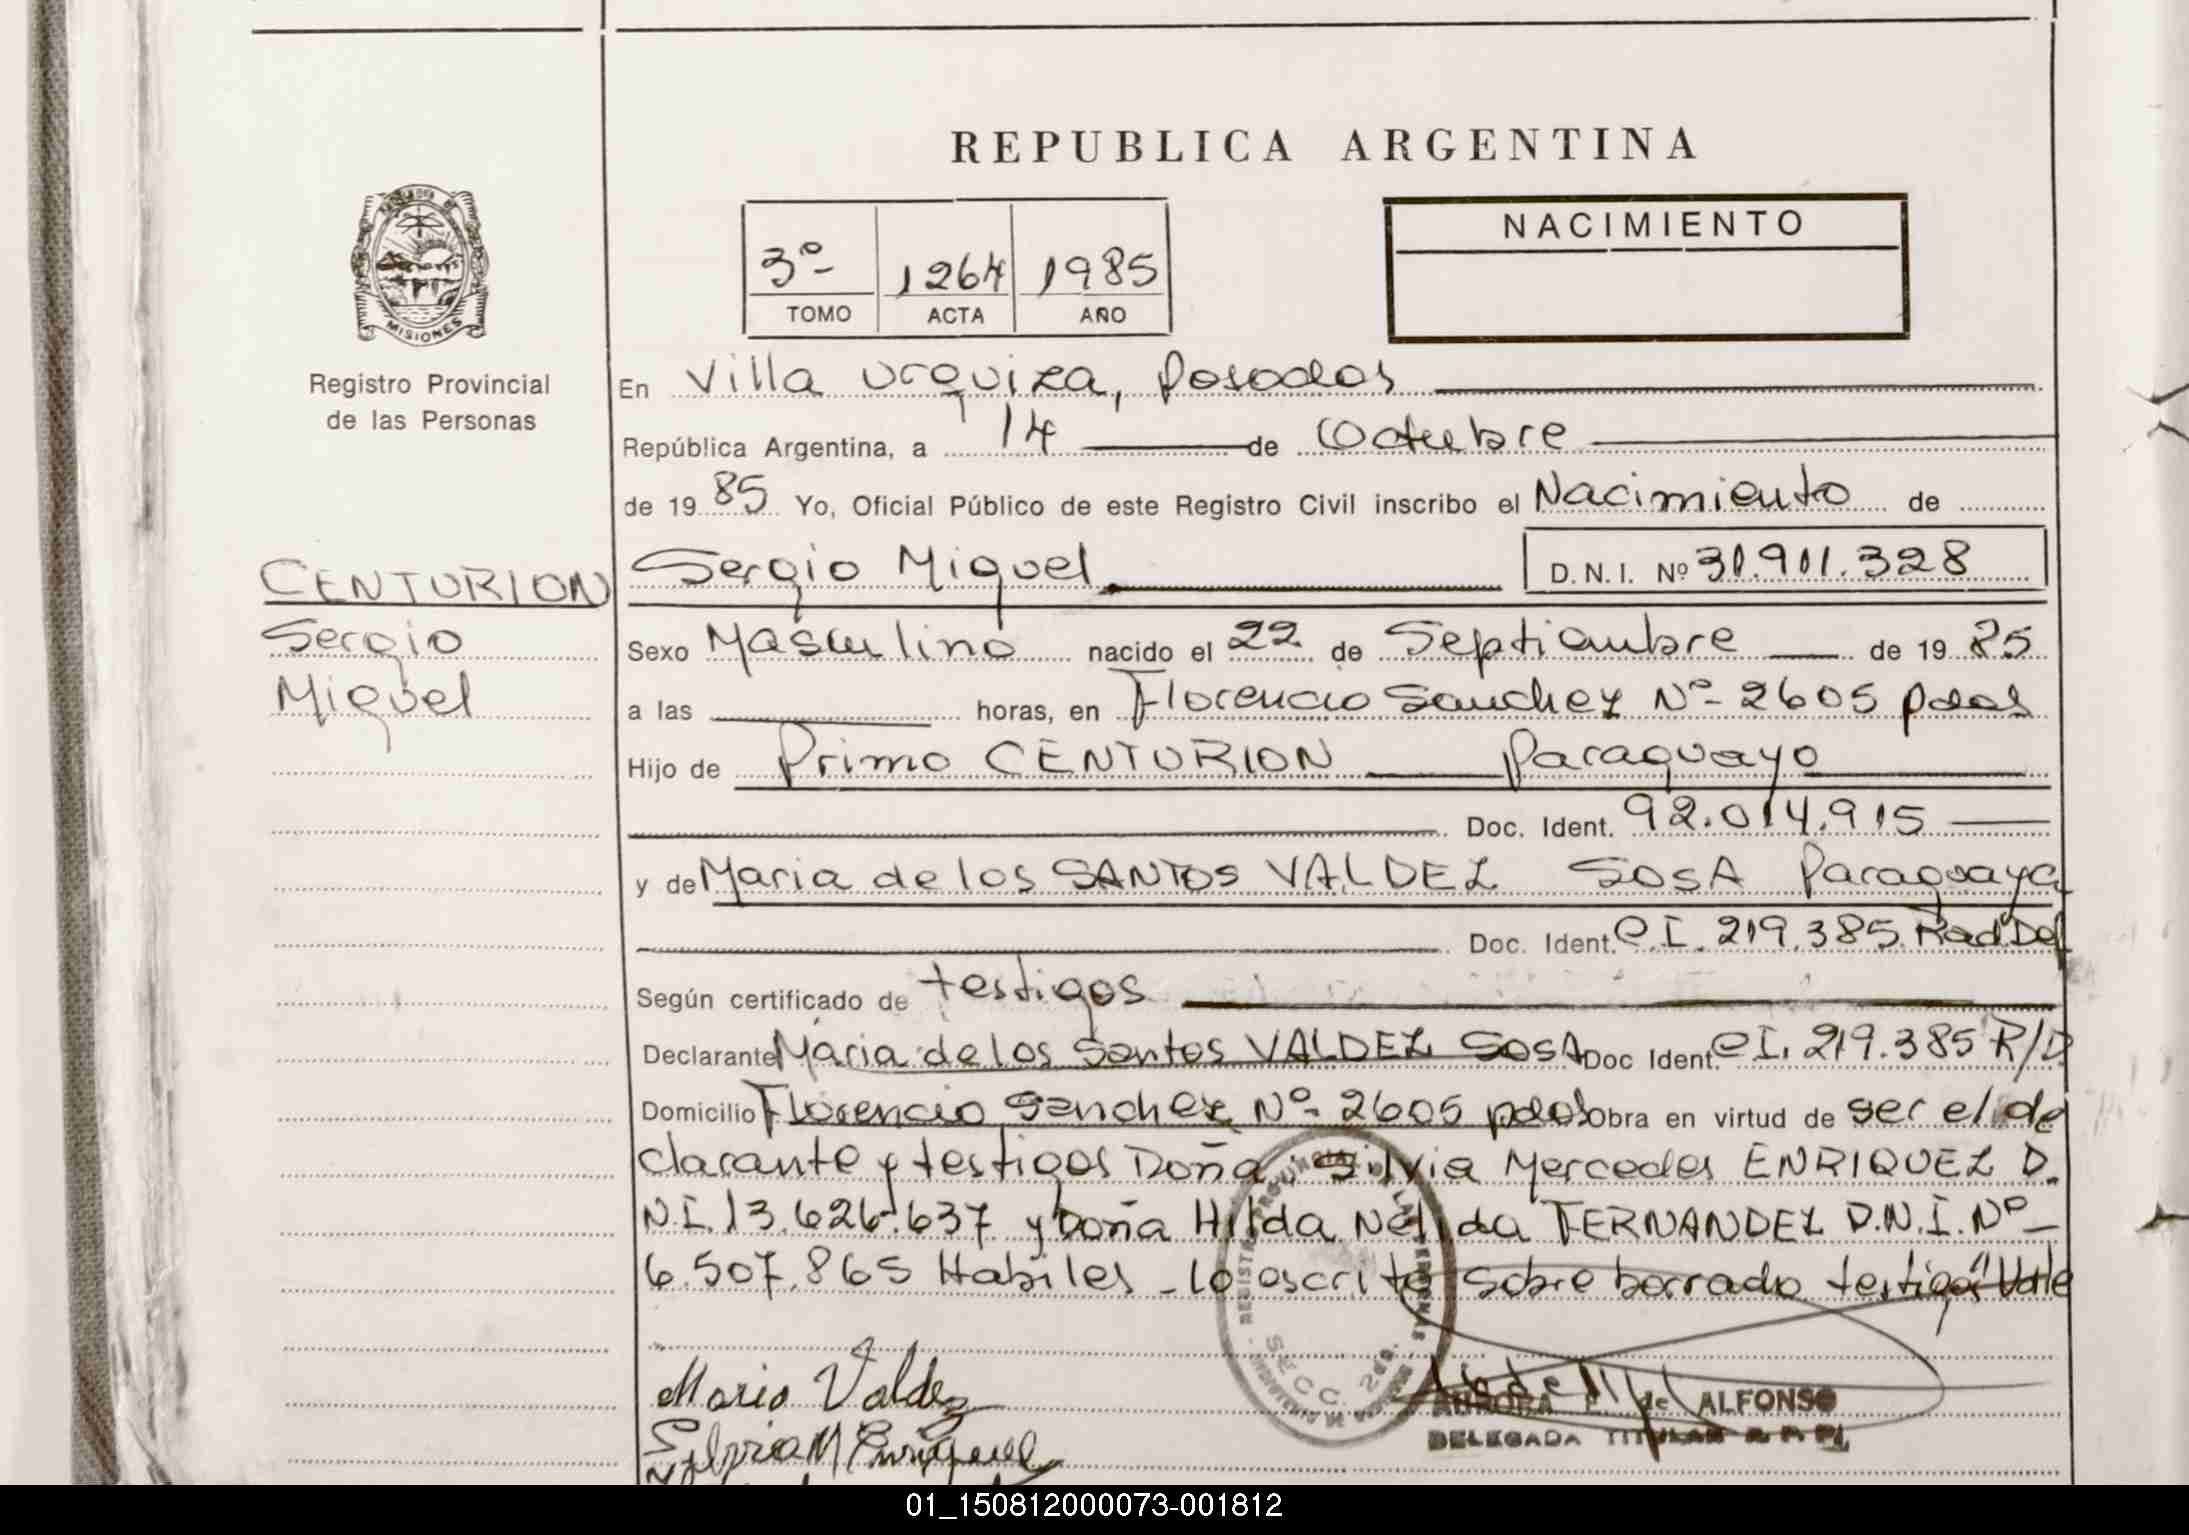 REPUBLICA ARGENTINA
NACIMIENTO
3º- 1264 1985
TOMO ACTA AÑO
MISIONES
Registro Provincial
de las Personas
En Villa Urquiza, Posadas
República Argentina, a 14 de Octubre
de 1985 Yo, Oficial Público de este Registro Civil inscribo el Nacimiento de
CENTURION
Sergio
Miguel
Sergio Miguel D.N.I. Nº 31.911.328
Sexo Masculino nacido el 22 de Septiembre de 1985
a las horas, en Florencio Sanchez Nº- 2605 pdas
Hijo de Primo CENTURION Paraguayo
Doc. Ident. 92.014.915
y de Maria de los SANTOS VALDEZ SOSA Paraguaya
Doc. Ident. C.I. 219.385 Rad Def
Según certificado de testigos
Declarante Maria de los Santos VALDEZ SOSA Doc Ident. C.I. 219.385 R/D
Domicilio Florencio Sanchez Nº- 2605 pdas Obra en virtud de ser el de
clarante y testigos Doña: Silvia Mercedes ENRIQUEZ D.
N.I. 13.626.637 y Doña Hilda Nelida FERNANDEZ D.N.I. Nº-
6.507.865 Habiles - lo escrito sobre borrado "testigos" Vale
Maria Valdez
Silvia M Enriquez
AURORA de ALFONSO
DELEGADA TITULAR R. P. P.
SEC. 2da.
01_150812000073-001812